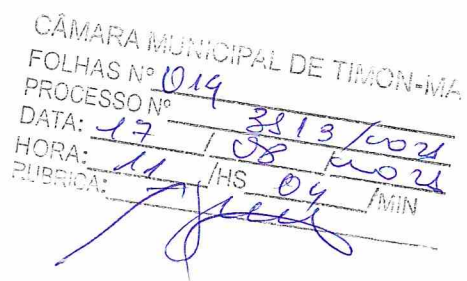 CÂMARA MUNICIPAL DE TIMON-MA
FOLHAS Nº 019
PROCESSO Nº 3513/2021
DATA: 17 / 08 / 2021
HORA: 11 /HS 04 /MIN
RUBRICA: